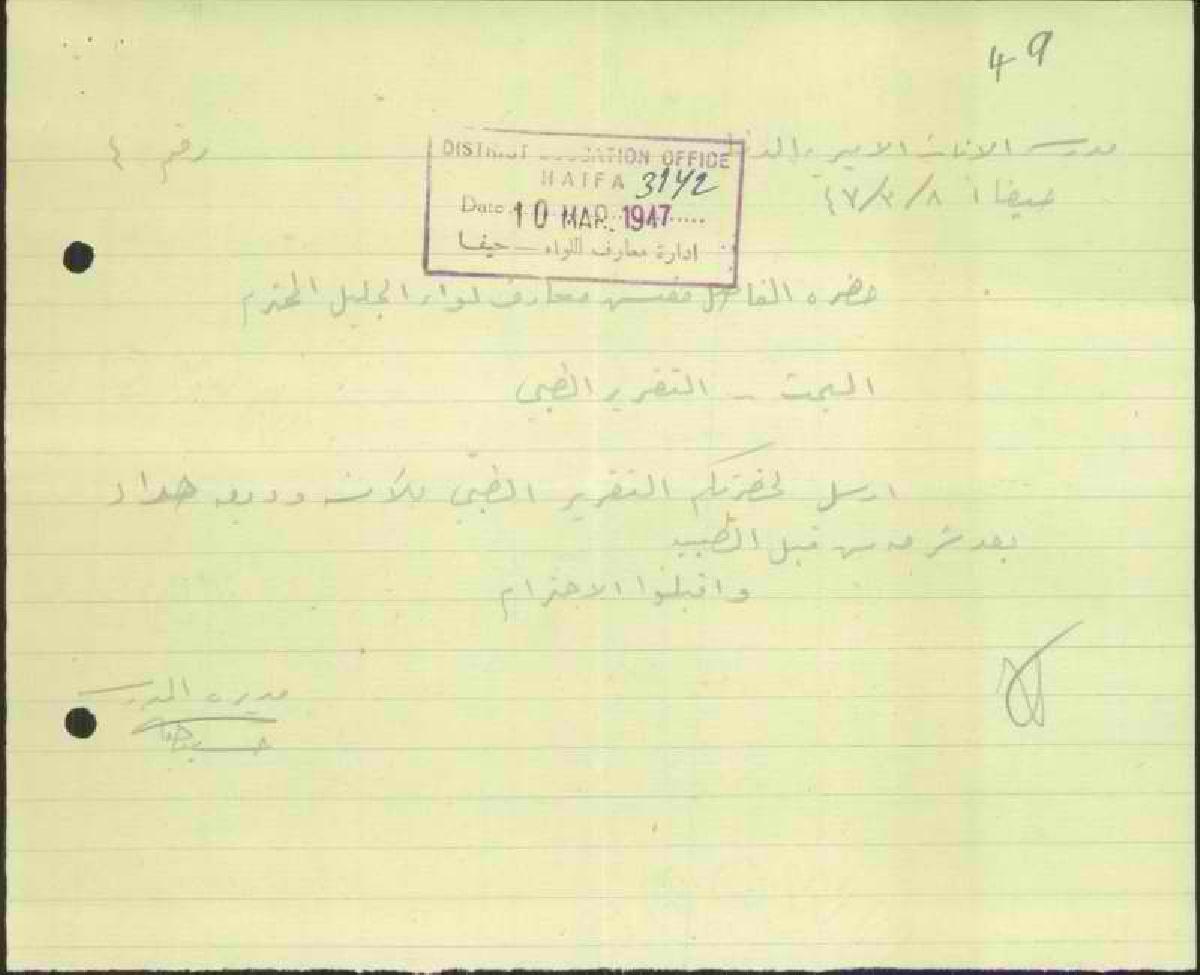 49
مدرسة الاناث الاميرية
رقم ٤
حيفا ٤٧/٣/٨
DISTRICT EDUCATION OFFICE
HAIFA 3142
Date 10 MAR. 1947
ادارة معارف اللواء — حيفا
حضرة الفاضل مفتش معارف لواء الجليل المحترم
البحث - التقرير الطبي
ارسل لحضرتكم التقرير الطبي للآنسة وديعه حداد
بعد من قبل الطبيب
واقبلوا الاحترام
مديرة المدرسة